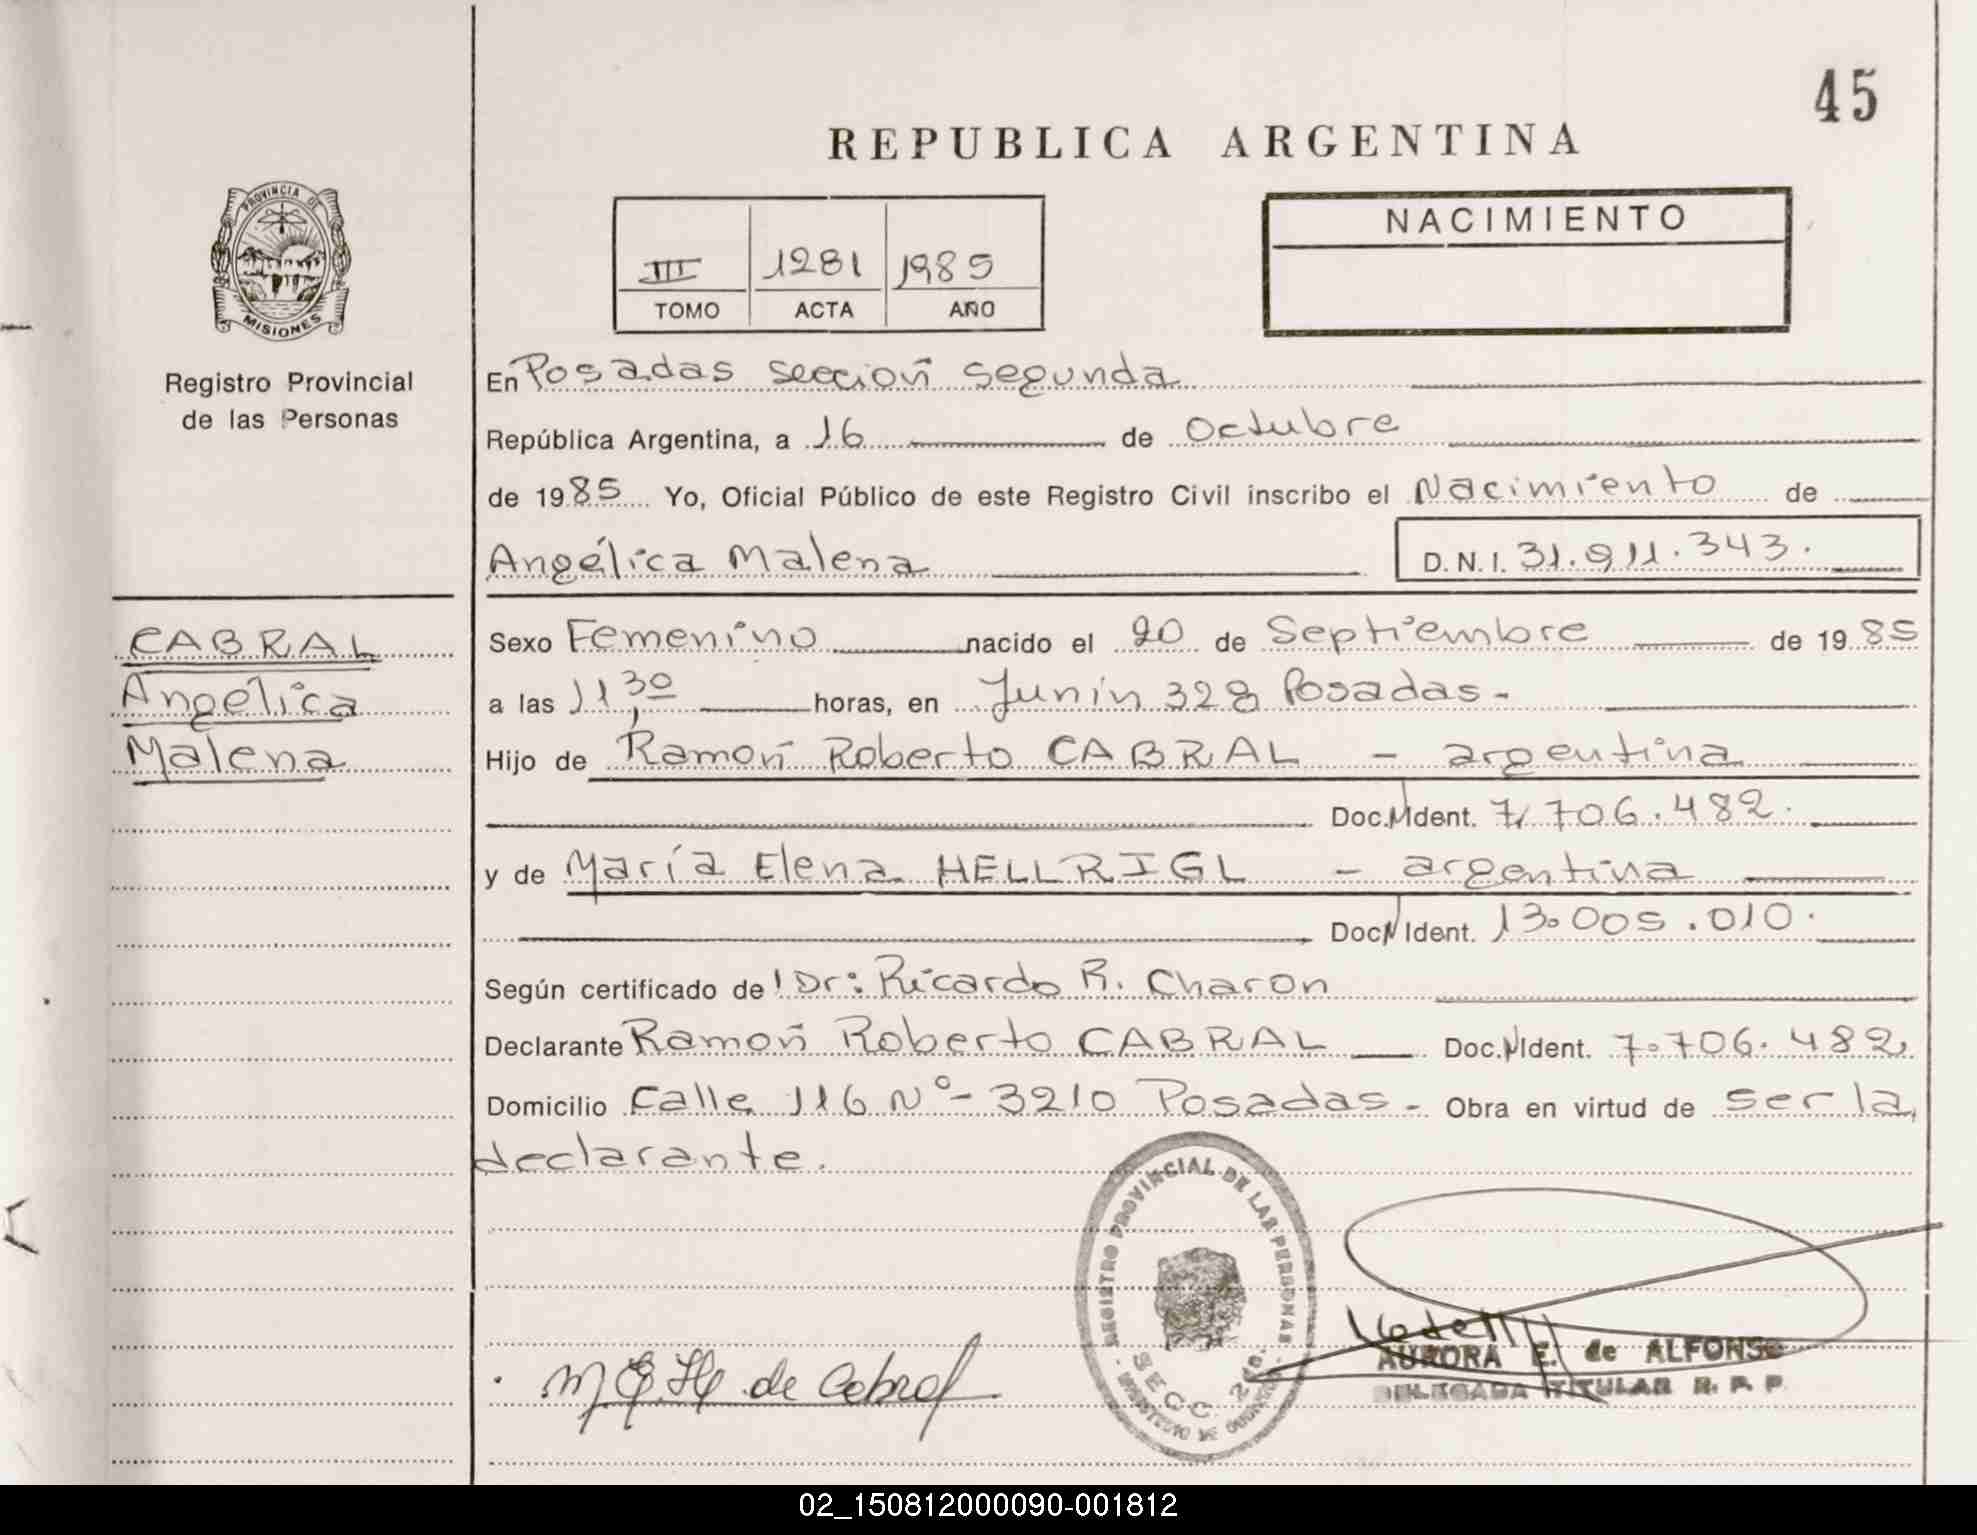 45
REPUBLICA ARGENTINA
PROVINCIA DE
MISIONES
Registro Provincial
de las Personas
III 1281 1985
TOMO ACTA AÑO
NACIMIENTO
En Posadas sección segunda
República Argentina, a 16 de Octubre
de 1985 Yo, Oficial Público de este Registro Civil inscribo el Nacimiento de
Angélica Malena D.N.I. 31.911.343.
CABRAL
Angélica
Malena
Sexo Femenino nacido el 20 de Septiembre de 1985
a las 11,30 horas, en Junín 328 Posadas-
Hijo de Ramón Roberto CABRAL - argentina
Doc. Ident. 7.706.482.
y de María Elena HELLRIGL - argentina
Doc. Ident. 13.005.010.
Según certificado de Dr: Ricardo R. Charon
Declarante Ramón Roberto CABRAL Doc. Ident. 7.706.482.
Domicilio Calle 116 Nº- 3210 Posadas- Obra en virtud de ser la
declarante.
REGISTRO PROVINCIAL DE LAS PERSONAS
SECC. 2da.
M E H de Cabral
AURORA E. de ALFONSO
DELEGADA TITULAR R. P. P.
02_150812000090-001812